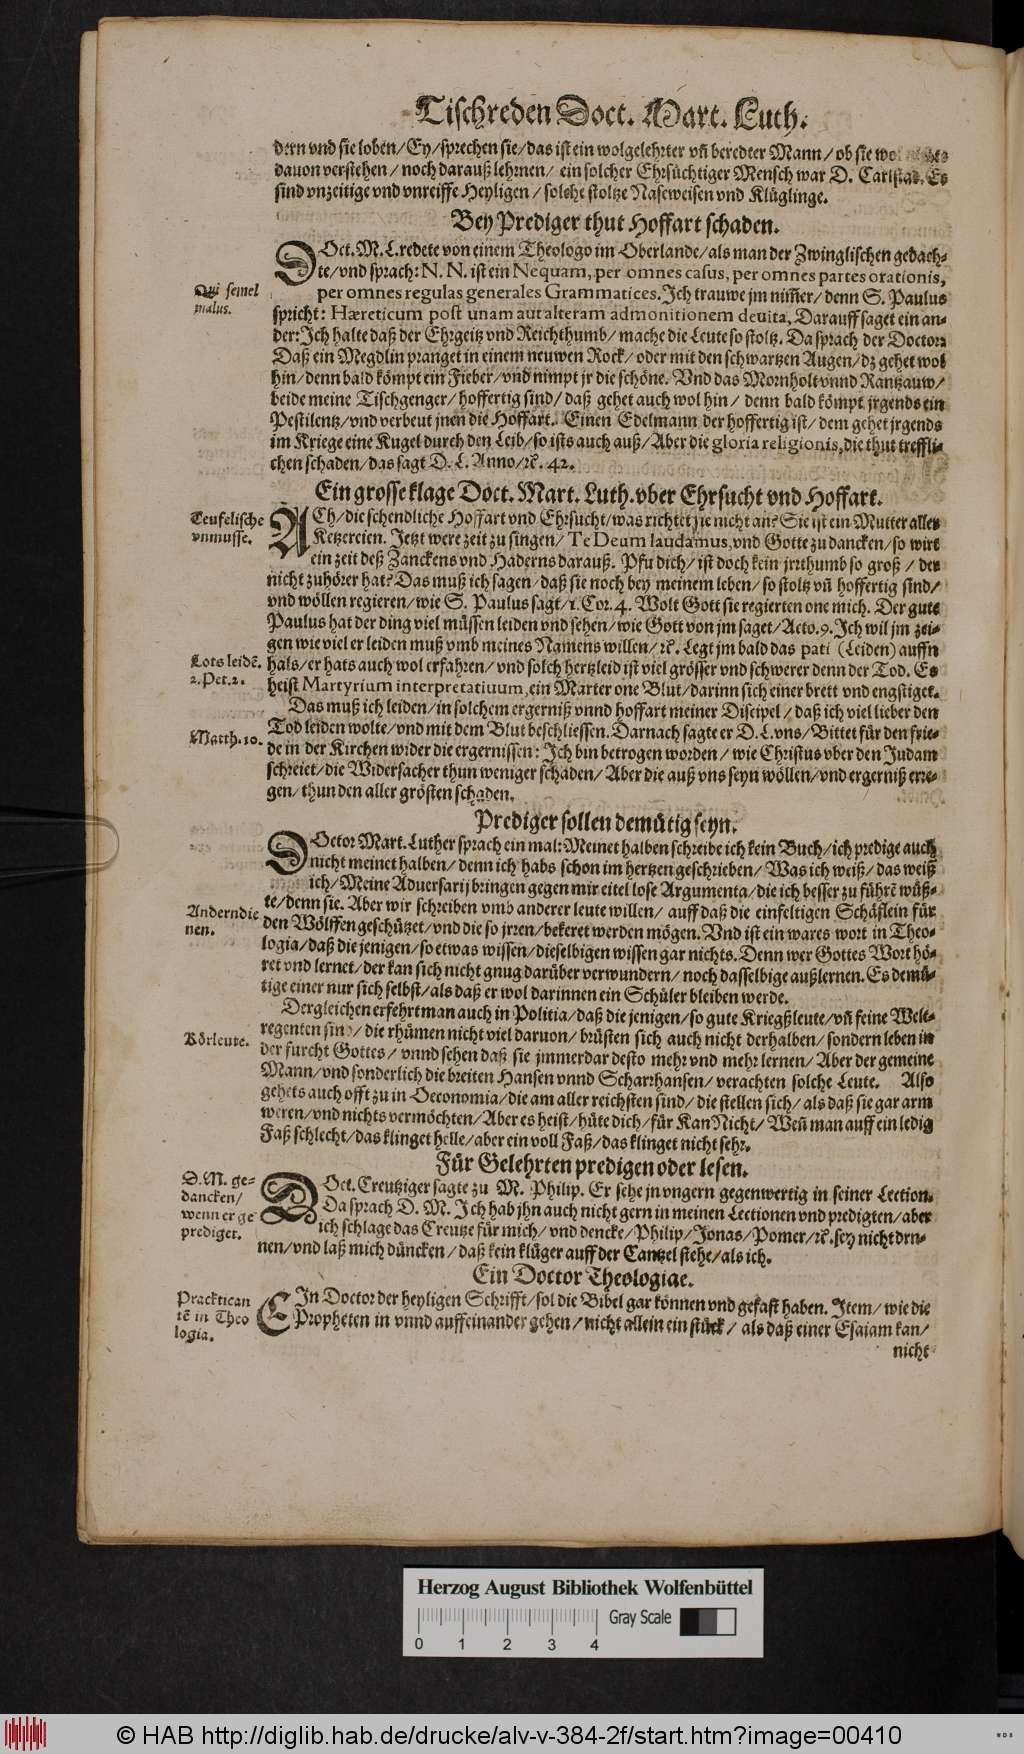 Tischreden Doct. Mart. Luth.
dern vnd sie loben/Ey/sprechen sie/das ist ein wolgelehrter vñ beredter Mann/ ob sie wol
dauon verstehen/ noch darauß lehrnen/ ein solcher Ehrsüchtiger Mensch war D. Carlstad. Es
sind vnzeitige vnd vnreiffe Heyligen/ solche stoltze Naseweisen vnd Klüglinge.
Bey Prediger thut Hoffart schaden.
DOct. M. L. redete von einem Theologo im Oberlande/als man der Zwinglischen gedach-
te/vnd sprach: N. N. ist ein Nequam, per omnes casus, per omnes partes orationis,
Qui semel
malus.
per omnes regulas generales Grammatices. Ich trauwe jm nim̃er/ denn S. Paulus
spricht: Hæreticum post unam aut alteram admonitionem deuita, Darauff saget ein an-
der: Ich halte daß der Ehrgeitz vnd Reichthumb/ mache die Leute so stoltz. Da sprach der Doctor:
Daß ein Megdlin pranget in einem neuwen Rock/ oder mit den schwartzen Augen/ dz gehet wol
hin/ denn bald kömpt ein Fieber/ vnd nimpt jr die schöne. Vnd das Mornholt vnnd Rantzauw/
beide meine Tischgenger/ hoffertig sind/ daß gehet auch wol hin/ denn bald kömpt jrgends ein
Pestilentz/vnd verbeut jnen die Hoffart. Einen Edelmann der hoffertig ist/ dem gehet jrgends
im Kriege eine Kugel durch den Leib/so ists auch auß/ Aber die gloria religionis, die thut treffli-
chen schaden/das sagt D. L. Anno/ ꝛc. 42.
Ein grosse klage Doct. Mart. Luth. vber Ehrsucht vnd Hoffart.
Teufelische
vnmusse.
ACh/die schendliche Hoffart vnd Ehrsucht/was richtet sie nicht an? Sie ist ein Mutter aller
Ketzereien. Jetzt were zeit zu singen/ Te Deum laudamus, vnd Gotte zu dancken/ so wirt
ein zeit deß Zanckens vnd Haderns darauß. Pfu dich/ ist doch kein jrrthumb so groß / der
nicht zuhörer hat? Das muß ich sagen/ daß sie noch bey meinem leben/ so stoltz vñ hoffertig sind/
vnd wöllen regieren/ wie S. Paulus sagt/1. Cor. 4. Wolt Gott sie regierten one mich. Der gute
Paulus hat der ding viel müssen leiden vnd sehen/ wie Gott von jm saget/ Acto. 9. Ich wil jm zei-
gen wie viel er leiden muß vmb meines Namens willen/ ꝛc. Legt jm bald das pati (Leiden) auffn
Lots leidẽ.
2. Pet. 2.
hals/ er hats auch wol erfahren/ vnd solch hertzleid ist viel grösser vnd schwerer denn der Tod. Es
heist Martyrium interpretatiuum, ein Marter one Blut/ darinn sich einer brett vnd engstiget.
Das muß ich leiden/in solchem ergerniß vnnd hoffart meiner Discipel / daß ich viel lieber den
Tod leiden wolte/ vnd mit dem Blut beschliessen. Darnach sagte er D. L. vns/ Bittet für den frie-
Matth. 10.
de in der Kirchen wider die ergernissen: Ich bin betrogen worden / wie Christus vber den Judam
schreiet/die Widersacher thun weniger schaden/ Aber die auß vns seyn wöllen/ vnd ergerniß erre-
gen/ thun den aller grösten schaden.
Prediger sollen demütig seyn.
DOctor Mart. Luther sprach ein mal: Meinet halben schreibe ich kein Buch/ ich predige auch
nicht meinet halben/ denn ich habs schon im hertzen geschrieben/ Was ich weiß/ das weiß
ich/ Meine Aduersarij bringen gegen mir eitel lose Argumenta/ die ich besser zu führẽ wüß-
te/denn sie. Aber wir schreiben vmb anderer leute willen/ auff daß die einfeltigen Schäflein für
Andern die
nen.
den Wölffen geschützet/vnd die so jrren/bekeret werden mögen. Vnd ist ein wares wort in Theo-
logia/daß die jenigen/so etwas wissen/dieselbigen wissen gar nichts. Denn wer Gottes Wort hö-
ret vnd lernet/der kan sich nicht gnug darüber verwundern/ noch dasselbige außlernen. Es demü-
tige einer nur sich selbst/als daß er wol darinnen ein Schüler bleiben werde.
Dergleichen erfehrt man auch in Politia/daß die jenigen/so gute Kriegßleute/vñ feine Welt-
Körleute.
regenten sind/ die rhümen nicht viel daruon/ brüsten sich auch nicht derhalben/ sondern leben in
der furcht Gottes/ vnnd sehen daß sie jmmerdar desto mehr vnd mehr lernen/ Aber der gemeine
Mann/vnd sonderlich die breiten Hansen vnnd Scharrhansen/ verachten solche Leute. Also
gehets auch offt zu in Oeconomia/die am aller reichsten sind/ die stellen sich/ als daß sie gar arm
weren/vnd nichts vermöchten/Aber es heist/hüte dich/für Kan Nicht/ Weñ man auff ein ledig
Faß schlecht/das klinget helle/aber ein voll Faß/das klinget nicht sehr.
Für Gelehrten predigen oder lesen.
D. M. ge-
dancken/
wenn er ge
prediget.
DOct. Creutziger sagte zu M. Philip. Er sehe jn vngern gegenwertig in seiner Lection.
Da sprach D. M. Ich hab jhn auch nicht gern in meinen Lectionen vnd predigten/aber
ich schlage das Creutze für mich/ vnd dencke/Philip/Jonas/Pomer/ꝛc. sey nicht drn-
nen/vnd laß mich düncken/ daß kein klüger auff der Cantzel stehe/als ich.
Ein Doctor Theologiae.
Practican
tẽ in Theo
logia.
EIn Doctor der heyligen Schrifft/ sol die Bibel gar können vnd gefast haben. Item/ wie die
Propheten in vnnd auffeinander gehen/ nicht allein ein stück/ als daß einer Esaiam kan/
nicht
Herzog August Bibliothek Wolfenbüttel
Gray Scale
0 1 2 3 4
© HAB http://diglib.hab.de/drucke/alv-v-384-2f/start.htm?image=00410